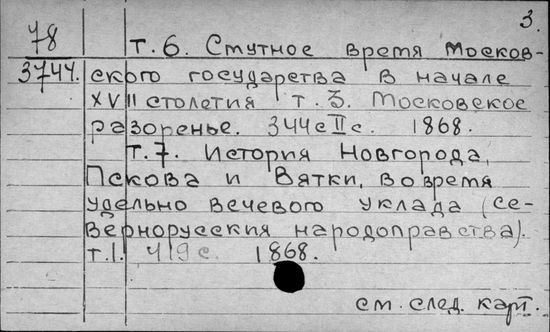 3.
78 т. 6. Смутное время Москов-
3744. ского государства в начале
XVII столетия т. 3. Московское
разоренье. 344 с II с. 1868.
т. 7. История Новгорода,
Пскова и Вятки, во время
удельно вечевого уклада (се-
вернорусския народоправства).
т. I. 419 с. 1868.
см. след. карт.